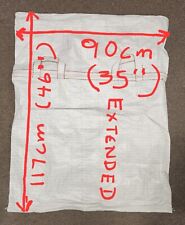 90cm
(35")
EXTENDED
117cm (46")